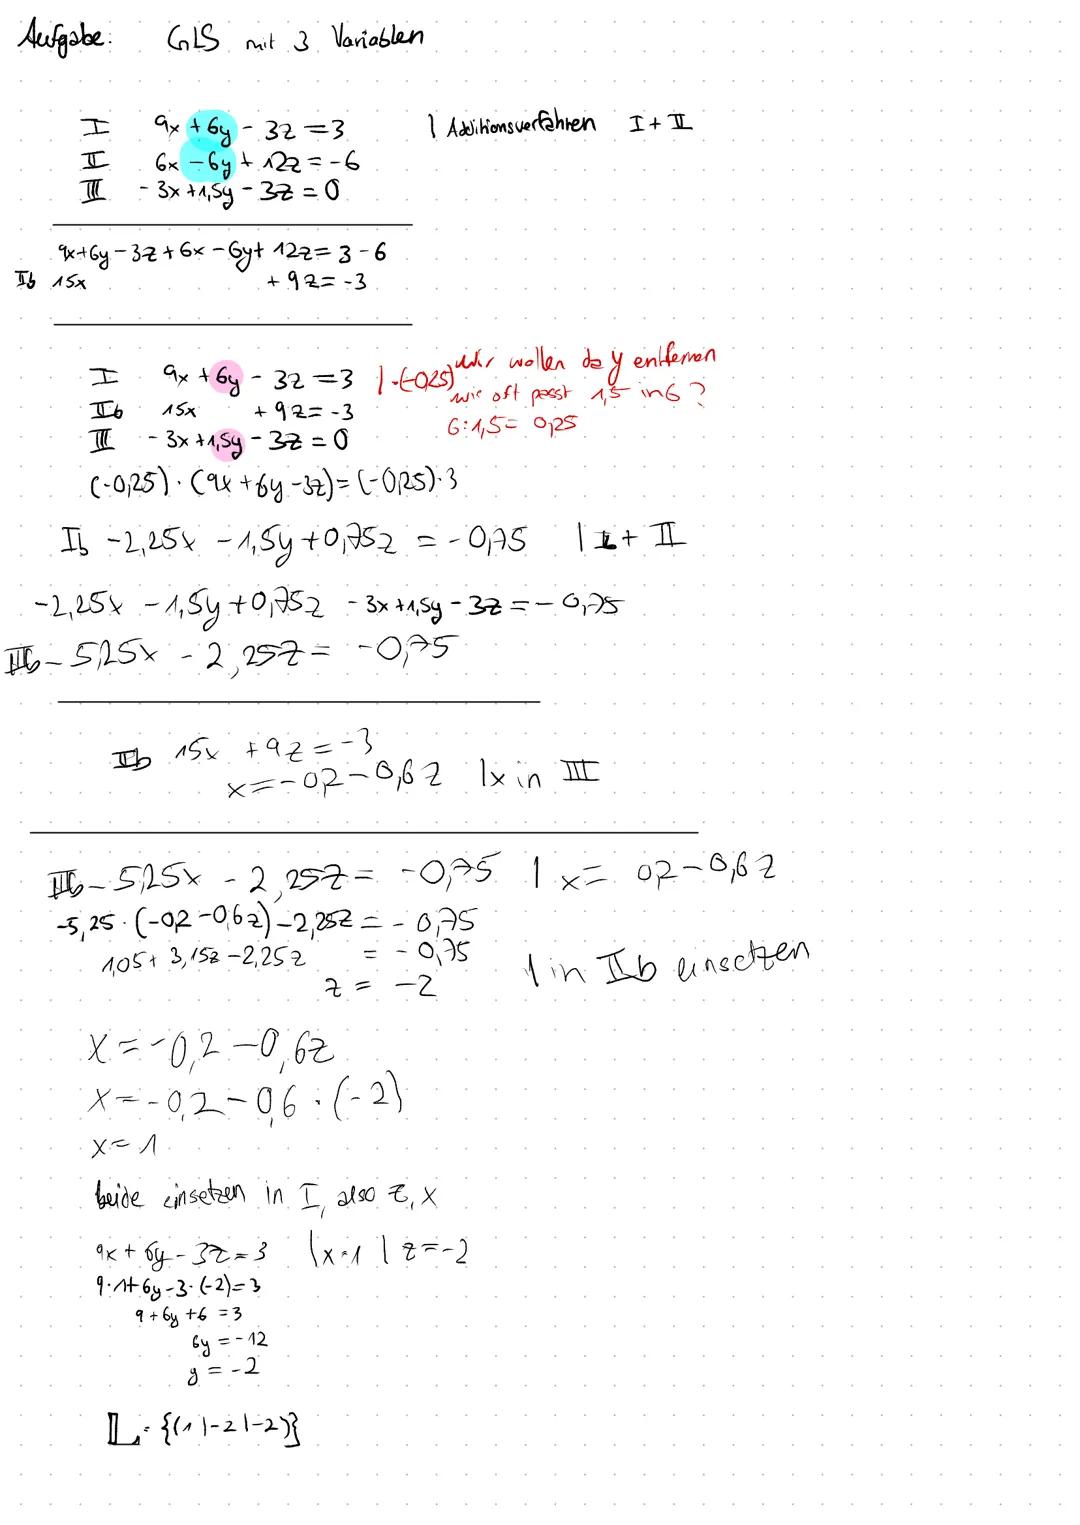 Aufgabe: GLS mit 3 Variablen
I 9x + 6y - 3z = 3 | Additionsverfahren I + II
II 6x - 6y + 12z = -6
III -3x + 1,5y - 3z = 0
9x + 6y - 3z + 6x - 6y + 12z = 3 - 6
IIb 15x + 9z = -3
I 9x + 6y - 3z = 3 | ·(-0,25) wir wollen da y entfernen
wie oft passt 1,5 in 6?
IIb 15x + 9z = -3
6:1,5 = 0,25
III -3x + 1,5y - 3z = 0
(-0,25) · (9x + 6y - 3z) = (-0,25)·3
Ib -2,25x - 1,5y + 0,75z = -0,75 | I + III
-2,25x - 1,5y + 0,75z - 3x + 1,5y - 3z = -0,75
IIIb -5,25x - 2,25z = -0,75
IIb 15x + 9z = -3
x = -0,2 - 0,6z | x in III
IIIb -5,25x - 2,25z = -0,75 | x = 0,2 - 0,6z
-5,25 · (-0,2 - 0,6z) - 2,25z = -0,75
1,05 + 3,15z - 2,25z = -0,75
z = -2 | in IIb einsetzen
x = -0,2 - 0,6z
x = -0,2 - 0,6 · (-2)
x = 1
beide einsetzen in I, also z, x
9x + 6y - 3z = 3 | x=1 | z=-2
9·1 + 6y - 3·(-2) = 3
9 + 6y + 6 = 3
6y = -12
y = -2
𝕃 = {(1|-2|-2)}